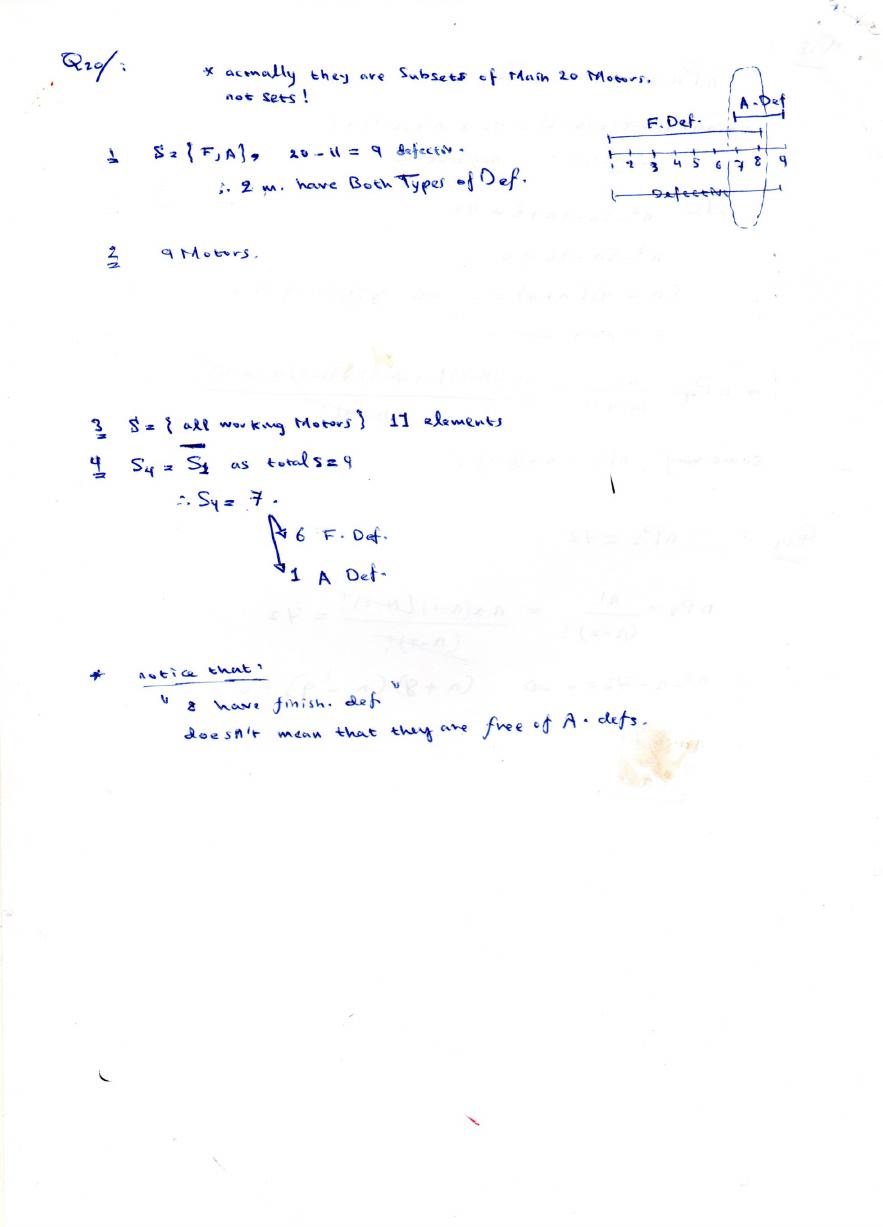 Q29/:
* actually they are Subsets of Main 20 Motors.
not sets!
A. Def
F. Def.
1 2 3 4 5 6 7 8 9
Defective
1 S = {F, A}, 20 - 11 = 9 defective.
∴ 2 m. have Both Types of Def.
2 9 Motors.
3 S = { all working Motors } 11 elements
4 S4 = S̅1 as total S = 9
∴ S4 = 7.
6 F. Def.
1 A Def.
* notice that:
" 8 have finish. def "
doesn't mean that they are free of A. defs.